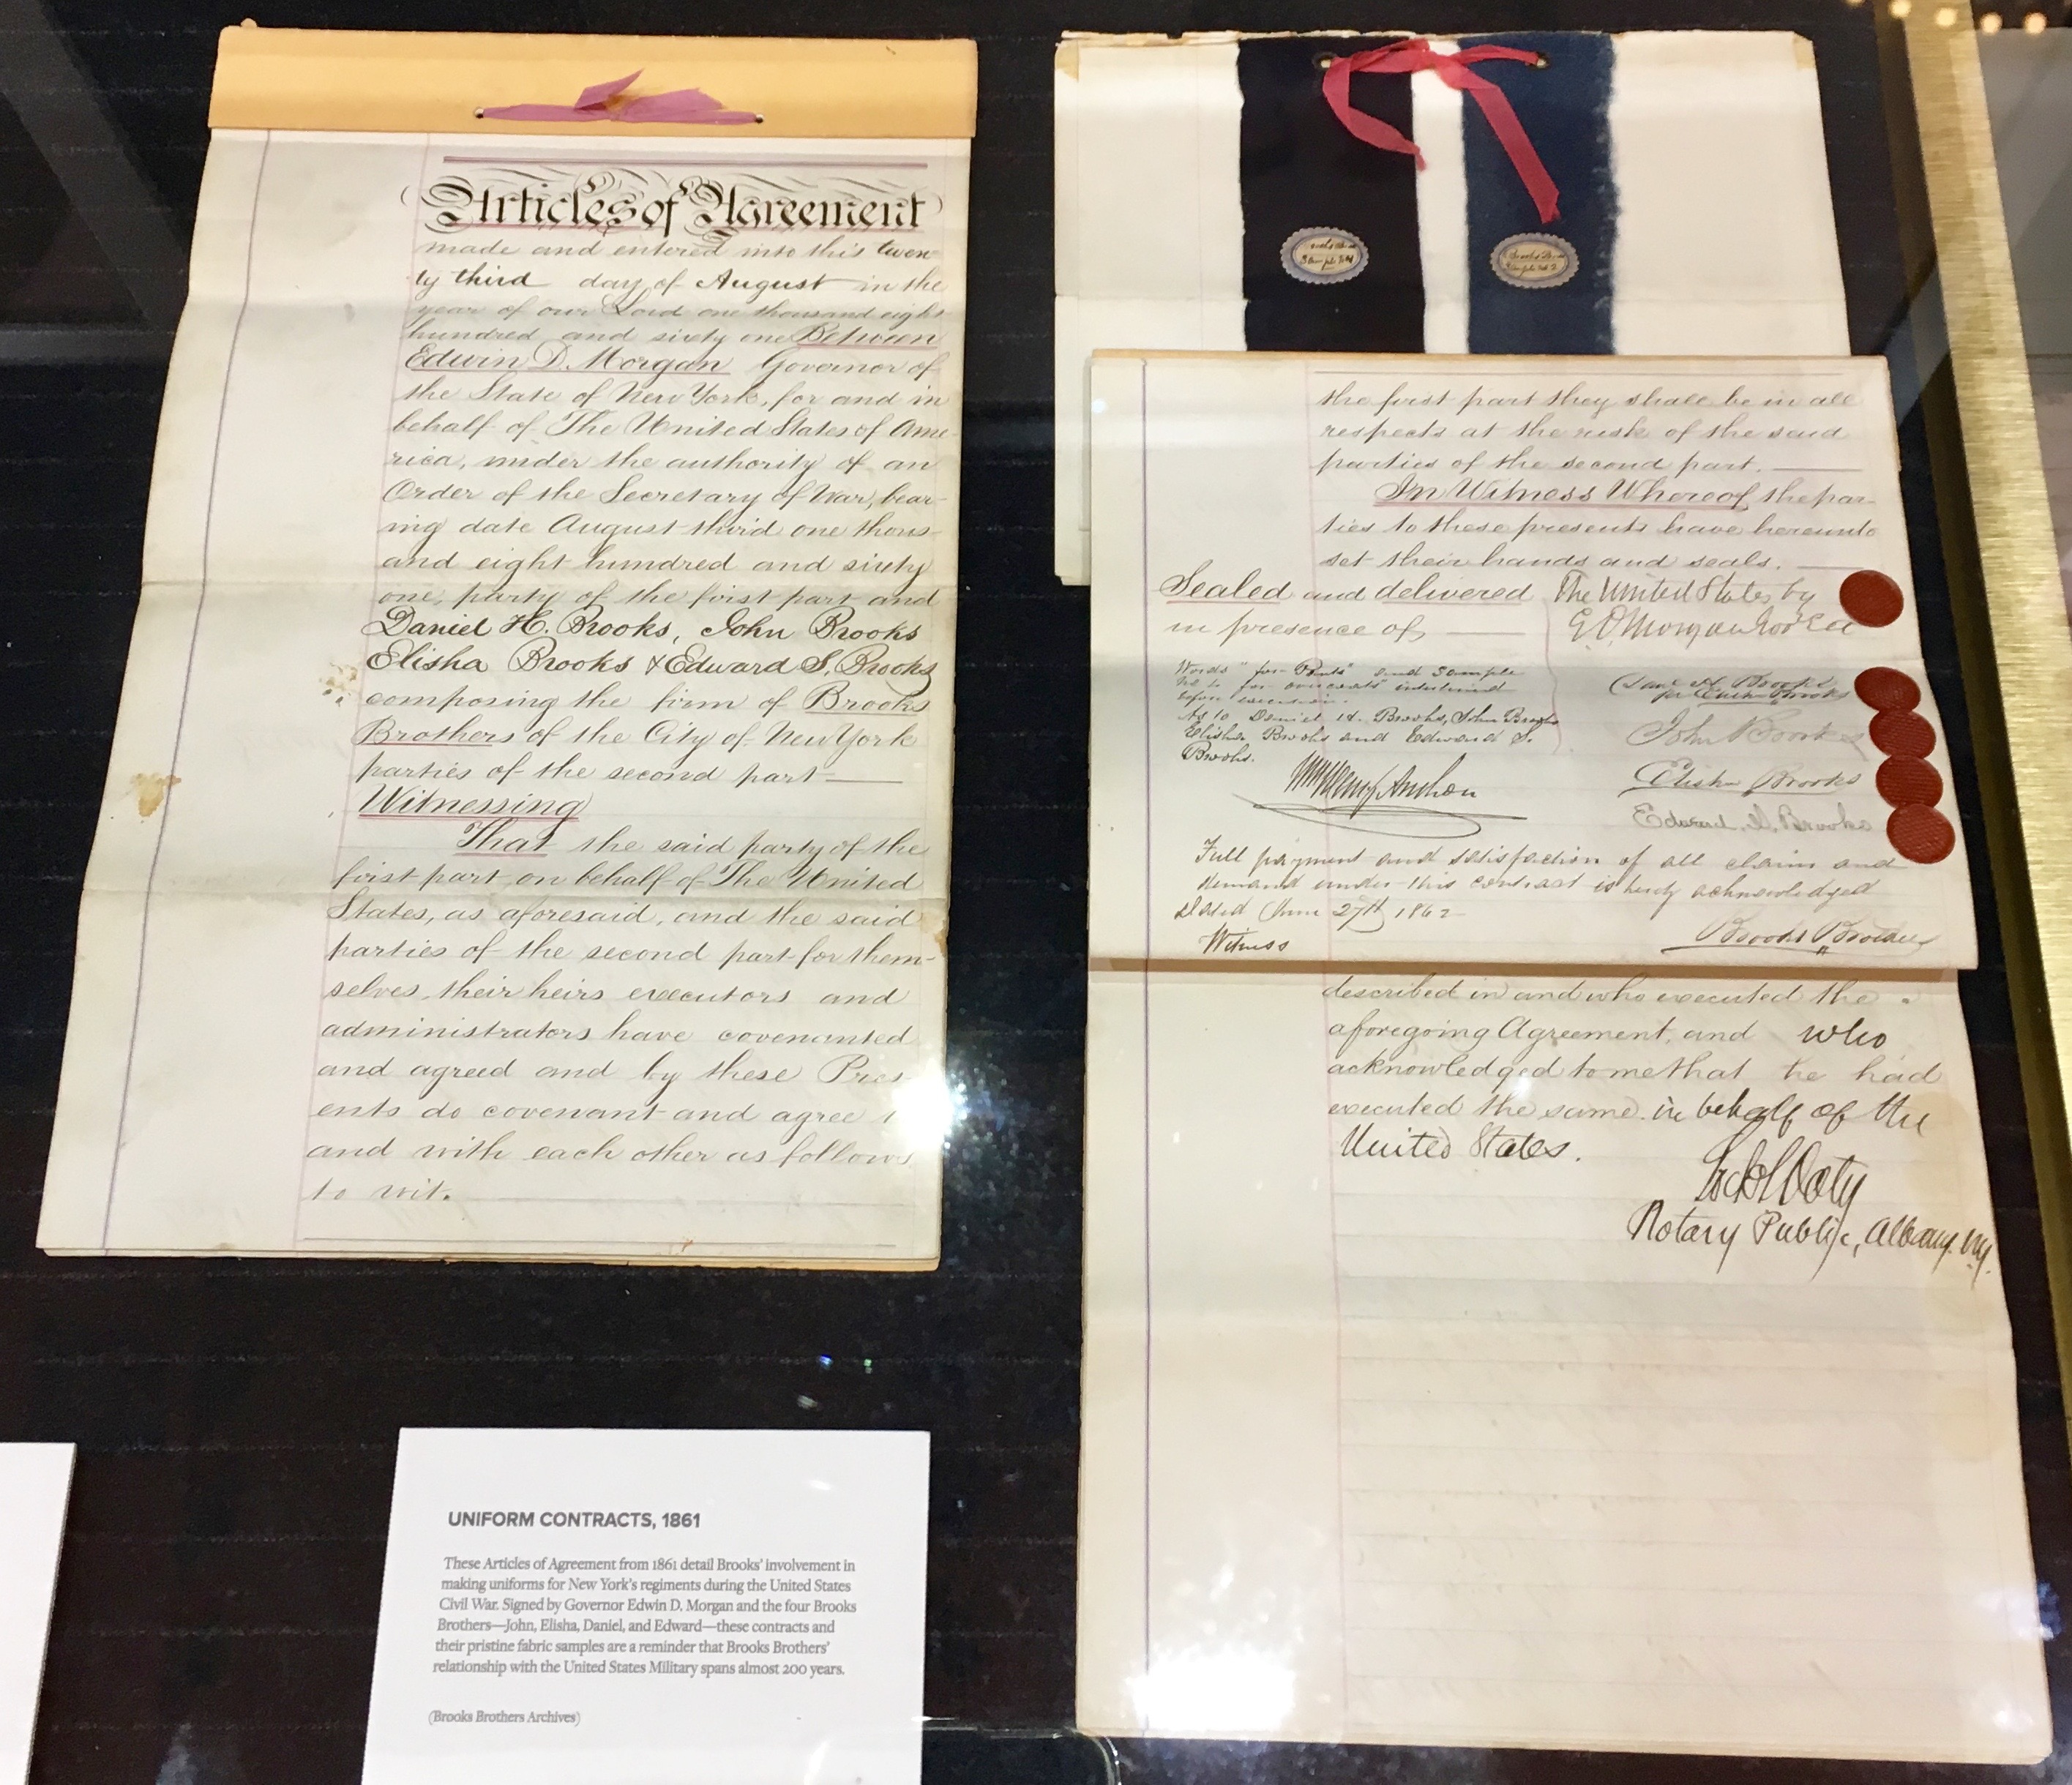 Articles of Agreement
made and entered into this twen
ty third day of August in the
year of our Lord one thousand eight
hundred and sixty one Between
Edwin D. Morgan Governor of
the State of New York, for and in
behalf of The United States of Ame-
rica, under the authority of an
Order of the Secretary of War, bear-
ing date August third one thous-
and eight hundred and sixty
one, party of the first part and
Daniel H. Brooks, John Brooks
Elisha Brooks & Edward S. Brooks
composing the firm of Brooks
Brothers of the City of New York
parties of the second part
Witnessing
That the said party of the
first part, on behalf of The United
States, as aforesaid, and the said
parties of the second part for them-
selves, their heirs executors and
administrators have covenanted
and agreed and by these Pres
ents do covenant and agree t
and with each other as follows
to wit.
Brooks Bros
Sample
Brooks Bros
Sample No 2
the first part they shall be in all
respects at the risk of the said
parties of the second part.
In Witness Whereof the par-
ties to these presents have hereunto
set their hands and seals.
Sealed and delivered
in presence of
The United States by
E. D. Morgan
Words "for Pants" and Sample
No 2 for overcoats interlined
before execution.
As to Daniel H. Brooks, John Brooks
Elisha Brooks and Edward S.
Brooks.
Danl H. Brooks
per Elisha Brooks
John Brooks
Elisha Brooks
Edward S. Brooks
Wm Henry Anthon
Full payment and satisfaction of all claim and
demand under this contract is hereby acknowledged
Dated June 27th 1862
Witness
Brooks Brothers
described in and who executed the
aforegoing Agreement, and who
acknowledged to me that he had
executed the same in behalf of the
United States.
Doty
Notary Public, Albany. NY.
UNIFORM CONTRACTS, 1861
These Articles of Agreement from 1861 detail Brooks' involvement in
making uniforms for New York's regiments during the United States
Civil War. Signed by Governor Edwin D. Morgan and the four Brooks
Brothers—John, Elisha, Daniel, and Edward—these contracts and
their pristine fabric samples are a reminder that Brooks Brothers'
relationship with the United States Military spans almost 200 years.
(Brooks Brothers Archives)